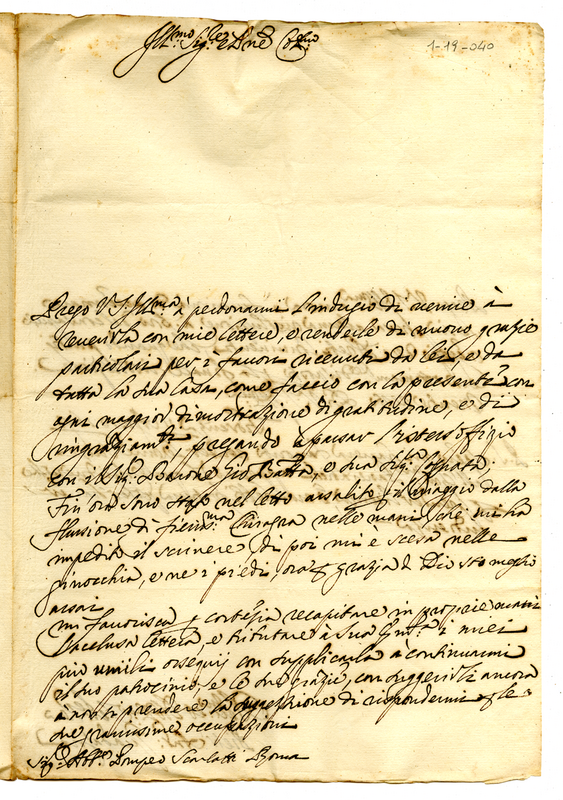 Ill:mo Sig:re e Pne Co:mo
1-19-040
Prego V.S. Ill:ma à perdonarmi l'indugio di venire à
reverirla con mie lettere, e renderle di nuovo grazie
particolari per i favori ricevuti da lei, e da
tutta la sua casa, come faccio con la presente con
ogni maggior dimostrazione di gratitudine, e di
ringraziam:ti, pregando à passar l'istess'offizio
con il Sig: Barone Gio Batta, e sua Sig:ra Cognata.
Fin'ora sono stato nel letto assalito in viaggio dalla
flussione di Chiragra nelle mani, che mi ha
impedito il scrivere, di poi mi è scesa nelle
ginocchia, e ne i piedi, ora p grazia di Dio sto meglio
assai
Mi favorisca p cortesia recapitare in proprie mani
l'acclusa lettera, e tributare à Sua i miei
più umili ossequij con supplicarla a continuarmi
il suo patrocinio, e le sue grazie, con suggerirli ancora
à non si prendere la di rispondermi p le
sue gravissime occupazioni
Sig:e Abb:e Pompeo Scarlatti Roma